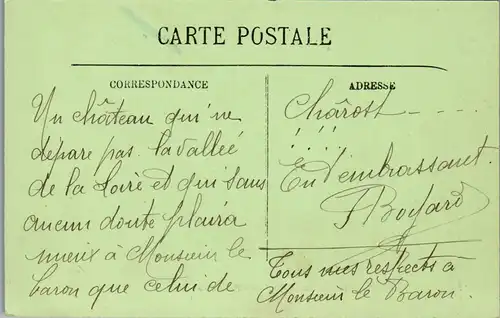 CARTE POSTALE
CORRESPONDANCE
Un château qui ne
dépare pas la vallée
de la Loire et qui sans
aucun doute plaira
mieux à Monsieur le
baron que celui de
ADRESSE
Chârost - - - -
! !!!
En t'embrassant.
Tous mes respects à
Monsieur le Baron.